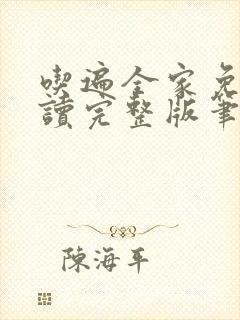 喫遍全家免
讀完整版筆
陳海平